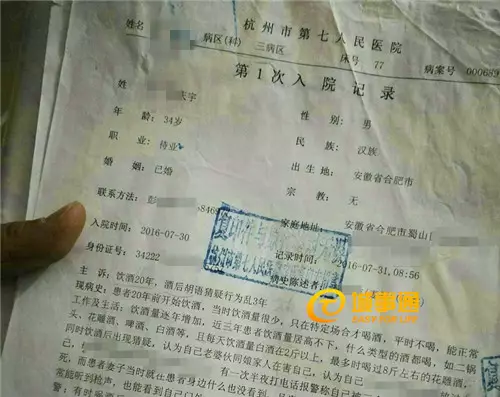 杭州市第七人民医院
姓名: 病区(科) 三病区 床号 77 病案号 000689
第1次入院记录
姓 庆宇 性 别: 男
年 龄: 34岁 民 族: 汉族
职 业: 待业 出生地: 安徽省合肥市
婚 姻: 已婚 宗 教: 无
联系方法: 彭 8469 家庭地址: 安徽省合肥市蜀山
入院时间: 2016-07-30 记录时间: 2016-07-31,08:56
身份证号: 34222 病史陈述者
主 诉: 饮酒20年,酒后胡语猜疑行为乱3年
现病史: 患者20年前开始饮酒,当时饮酒量很少,只在特定场合才喝酒,平时不喝,能正常
工作及生活; 饮酒量逐年增加,近三年患者饮酒量居高不下,什么类型的酒都喝,如二锅
头、花雕酒、啤酒、白酒等,且每天饮酒量白酒在2斤以上,最多时喝过8斤左右的花雕酒,
同时饮酒后出现猜疑,认为自己老婆伙同娘家人在害自己,认为自己
死,而患者妻子当时就在患者身边什么也没看到, 有一次半夜打电话报警称自己被
常能听到枪声,也能看到自己
警;